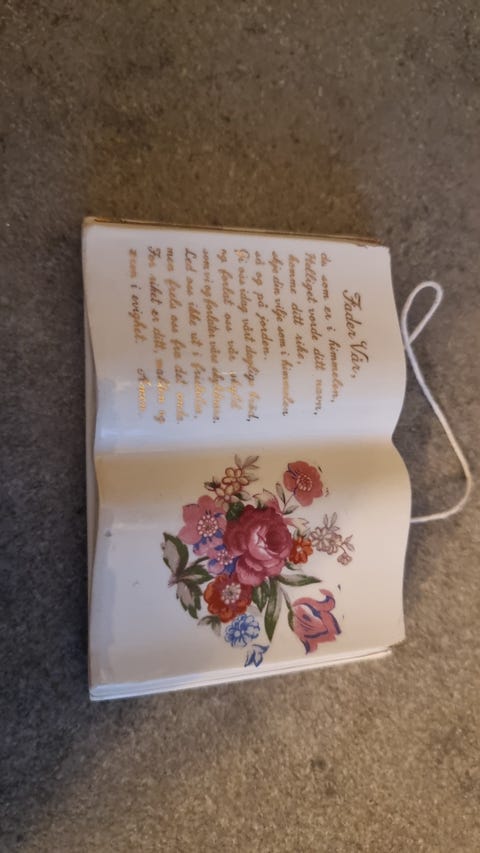 Fader Vår,
du som er i himmelen,
Helliget vorde ditt navn,
komme ditt rike,
skje din vilje som i himmelen
så og på jorden.
Gi oss idag vårt daglige brød,
og forlat oss vår skyld
som vi og forlater våre skyldnere,
Led oss ikke ut i fristelse,
men frels oss fra det onde.
For riket er ditt makten og
æren i evighet. Amen.